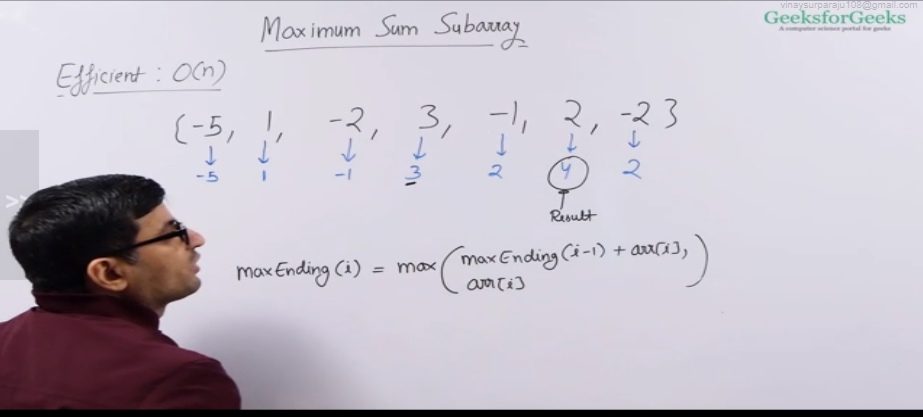 vinaysurparaju108@gmail.com
GeeksforGeeks
A computer science portal for geeks
Maximum Sum Subarray
Efficient : O(n)
{-5, 1, -2, 3, -1, 2, -2}
↓ ↓ ↓ ↓ ↓ ↓ ↓
-5 1 -1 3 2 4 2
Result
maxEnding(i) = max(maxEnding(i-1) + arr[i],
arr[i])
>>